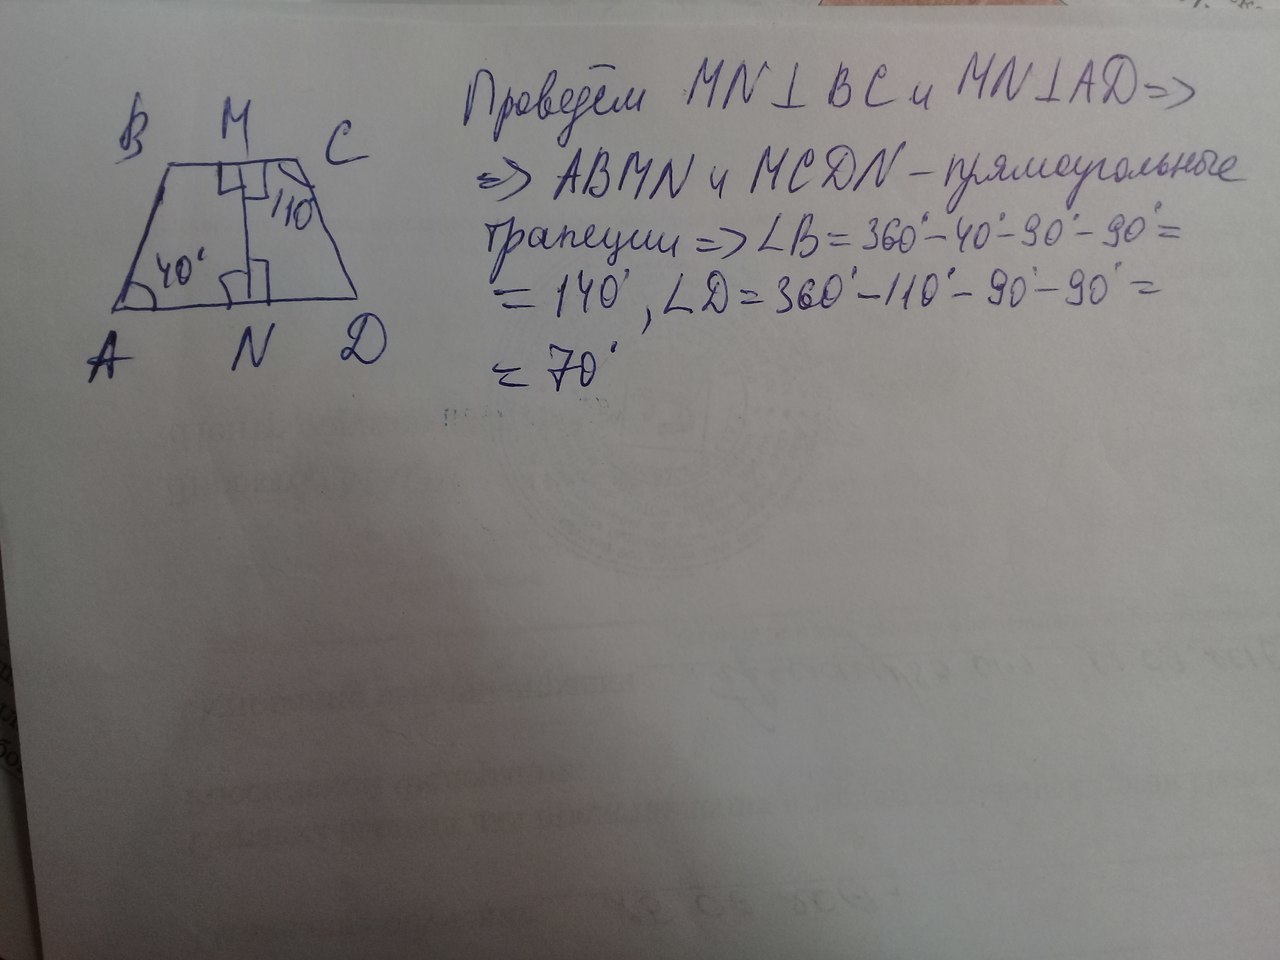 B M C
110
40°
A N D
Проведём MN⊥BC и MN⊥AD=>
=> ABMN и MCDN – прямоугольные
трапеции => ∠B = 360°-40°-90°-90° =
= 140°, ∠D = 360°-110°-90°-90° =
= 70°